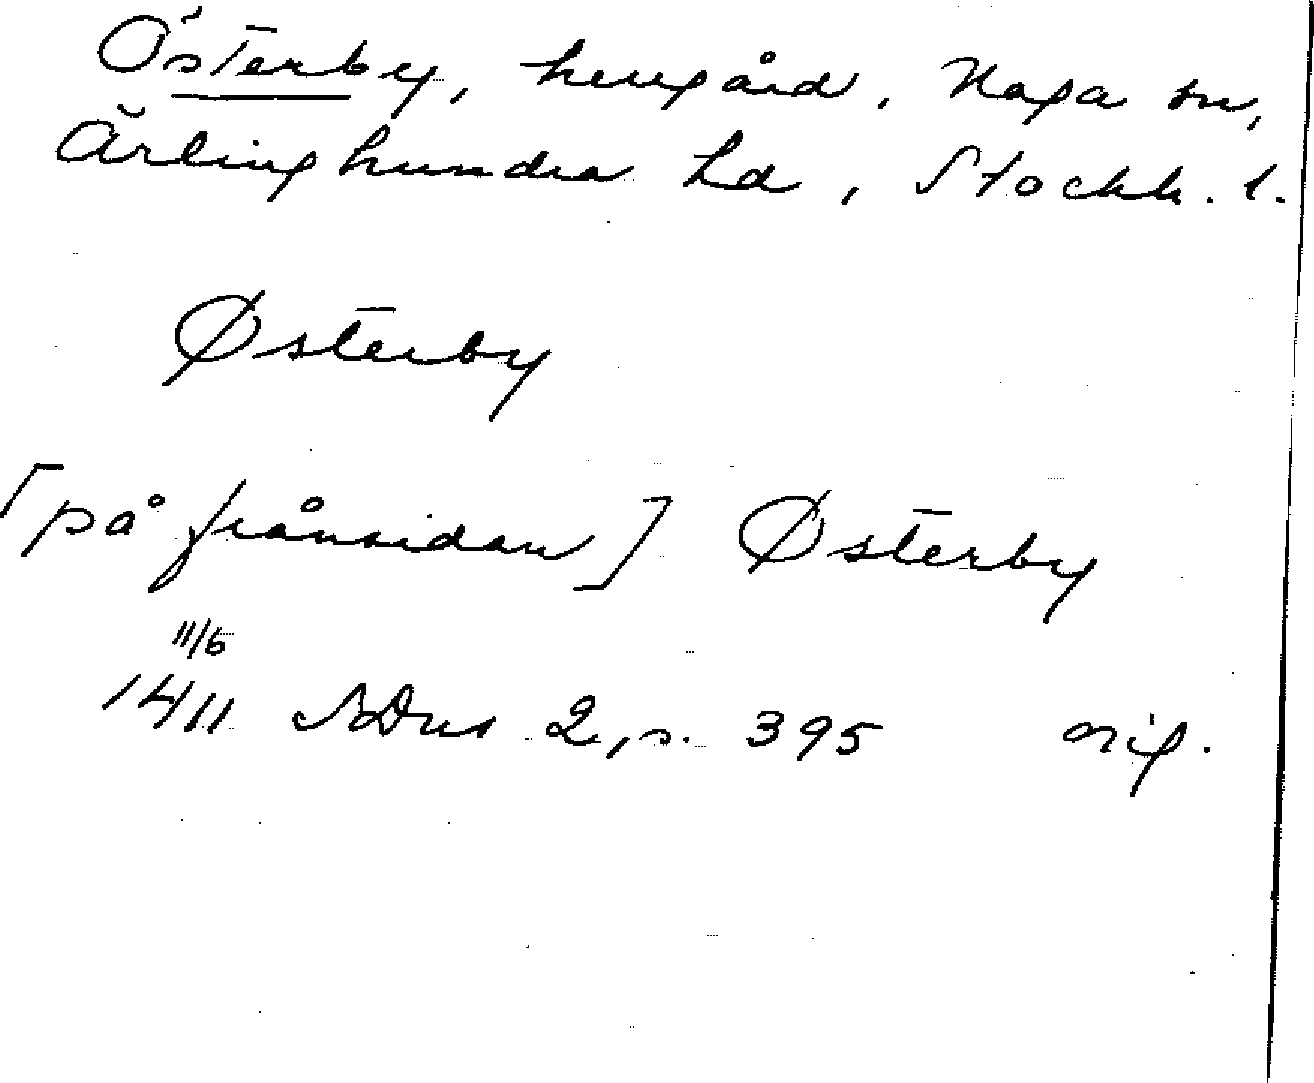 Österby, herrgård, Haga sn,
Ärlinghundra hd, Stockh. l.
Østerby
[på frånsidan] Østerby
11/6
1411 SDns 2, s. 395 orig.